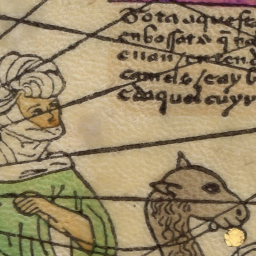 Tota aquesta
enbossats q̄ no
e uan / en tend
camels / e ay b
e daquel cuyr